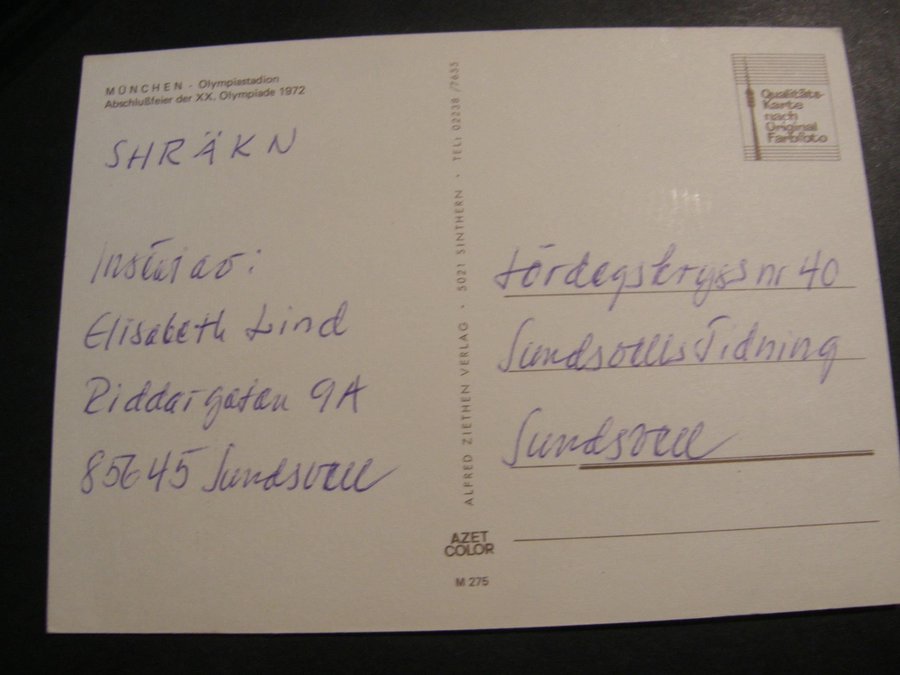 MÜNCHEN - Olympiastadion
Abschlußfeier der XX. Olympiade 1972
SHRÄKN
Insänt av:
Elisabeth Lind
Riddargatan 9A
85645 Sundsvall
ALFRED ZIETHEN VERLAG · 5021 SINTHERN · TEL: 02238 /7633
AZET
COLOR
M 275
Qualitäts-
Karte
nach
Original
Farbfoto
Lördagskryss nr 40
Sundsvalls Tidning
Sundsvall